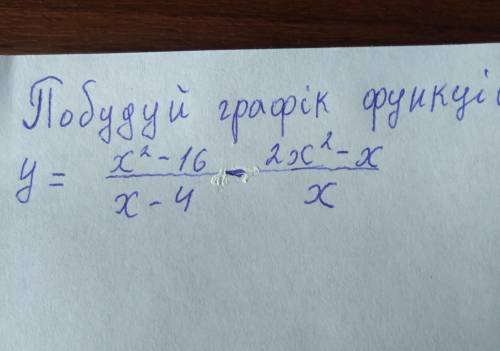 Побудуй графік функції
y = \frac{x^2 - 16}{x - 4} - \frac{2x^2 - x}{x}